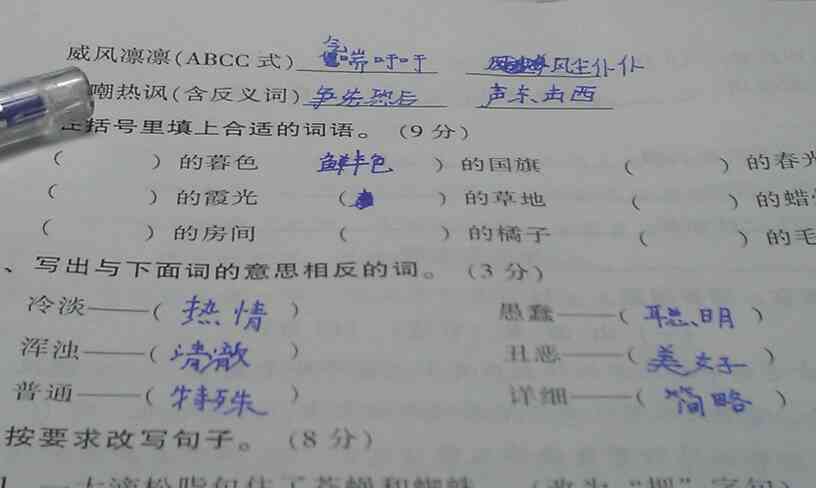 威风凛凛(ABCC式) 气喘吁吁 风尘仆仆
嘲热讽(含反义词) 争先恐后 声东击西
在括号里填上合适的词语。(9分)
( )的暮色 鲜艳 )的国旗 ( )的春光
( )的霞光 ( )的草地 ( )的蜡
( )的房间 ( )的橘子 ( )的毛
、写出与下面词的意思相反的词。(3分)
冷淡——(热情) 愚蠢——(聪明)
浑浊——(清澈) 丑恶——(美好)
普通——(特殊) 详细——(简略)
按要求改写句子。(8分)